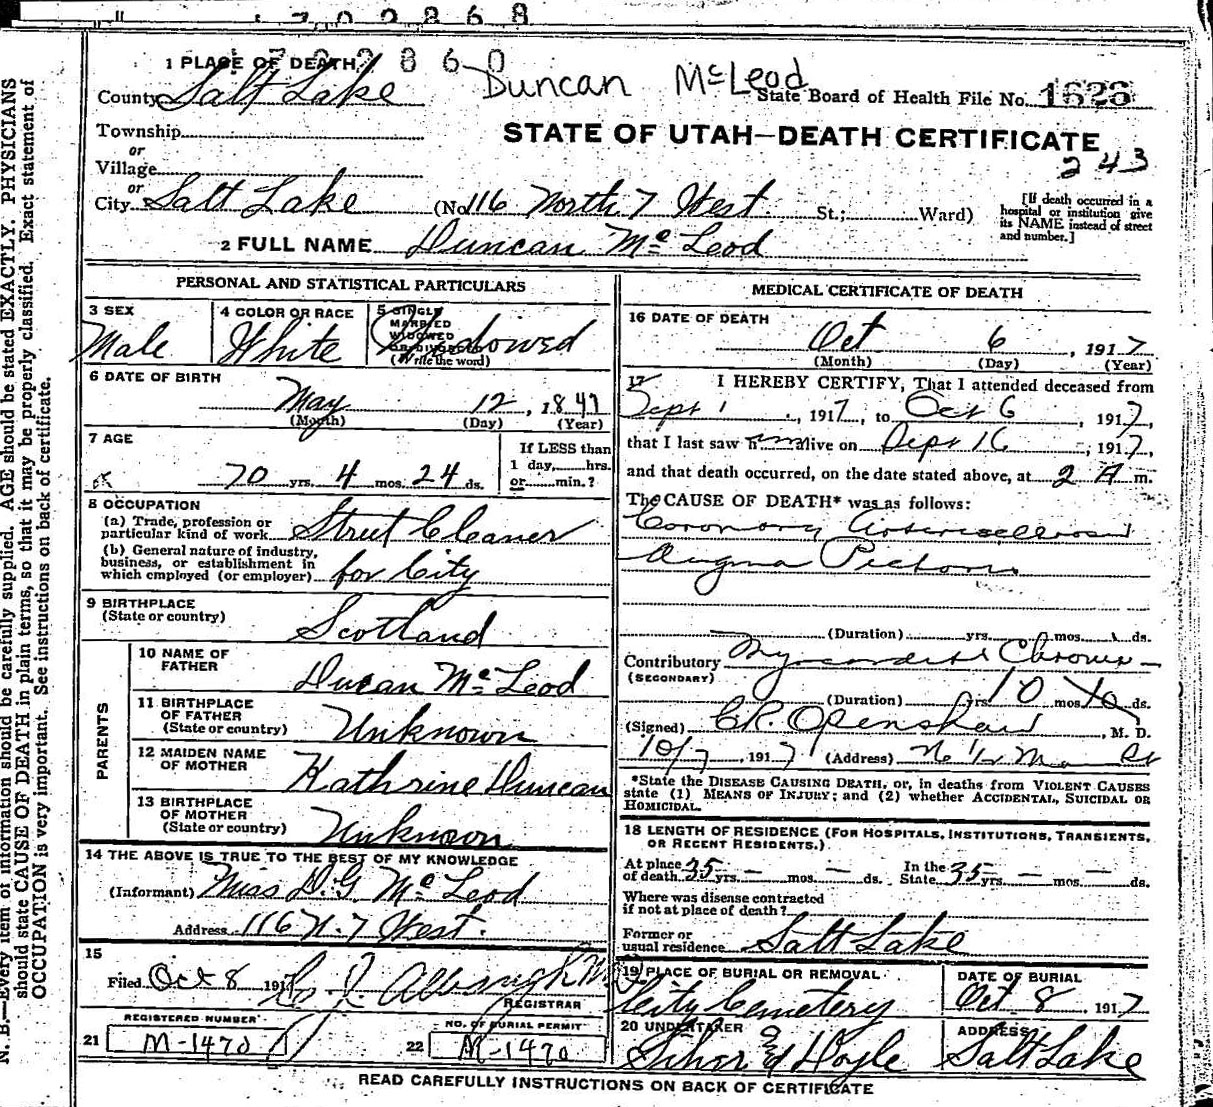 702868
1 PLACE OF DEATH 702860
Duncan McLeod
County Salt Lake
State Board of Health File No. 1626
Township
or
STATE OF UTAH—DEATH CERTIFICATE
Village
243
or
City Salt Lake (No. 116 North 7 West. St.; Ward)
[If death occurred in a
hospital or institution give
its NAME instead of street
and number.]
2 FULL NAME Duncan Mc Leod
PERSONAL AND STATISTICAL PARTICULARS
3 SEX
Male
4 COLOR OR RACE
White
5 SINGLE
MARRIED
WIDOWED
OR DIVORCED
(Write the word)
Widowed
6 DATE OF BIRTH
May 12, 1847
(Month) (Day) (Year)
7 AGE
70 yrs. 4 mos. 24 ds.
If LESS than
1 day, hrs.
or min.?
8 OCCUPATION
(a) Trade, profession or
particular kind of work Street Cleaner
(b) General nature of industry,
business, or establishment in
which employed (or employer) for City
9 BIRTHPLACE
(State or country)
Scotland
PARENTS
10 NAME OF
FATHER
Ducan Mc Leod
11 BIRTHPLACE
OF FATHER
(State or country)
Unknown
12 MAIDEN NAME
OF MOTHER
Kathrine Duncan
13 BIRTHPLACE
OF MOTHER
(State or country)
Unknown
14 THE ABOVE IS TRUE TO THE BEST OF MY KNOWLEDGE
(Informant) Miss D.G. Mc Leod
Address 116 N. 7 West.
15
Filed Oct 8 1917
REGISTRAR
REGISTERED NUMBER
21 M-1470
NO. OF BURIAL PERMIT
22 M-1470
MEDICAL CERTIFICATE OF DEATH
16 DATE OF DEATH
Oct 6, 1917
(Month) (Day) (Year)
17 I HEREBY CERTIFY, That I attended deceased from
Sept 1, 1917, to Oct 6, 1917,
that I last saw him alive on Sept 16, 1917,
and that death occurred, on the date stated above, at 2 A m.
The CAUSE OF DEATH* was as follows:
Coronary
Angina Pectoris
(Duration) yrs. mos. ds.
Contributory Myocarditis Chronic
(SECONDARY)
(Duration) yrs. 10 mos. ds.
(Signed) C.R. Openshaw, M. D.
10/7, 1917 (Address)
*State the DISEASE CAUSING DEATH, or, in deaths from VIOLENT CAUSES
state (1) MEANS OF INJURY; and (2) whether ACCIDENTAL, SUICIDAL OR
HOMICIDAL.
18 LENGTH OF RESIDENCE (FOR HOSPITALS, INSTITUTIONS, TRANSIENTS,
OR RECENT RESIDENTS.)
At place of death 35 yrs. — mos. — ds. In the State 35 yrs. — mos. — ds.
Where was disease contracted
if not at place of death?
Former or
usual residence Salt Lake
19 PLACE OF BURIAL OR REMOVAL
City Cemetery
DATE OF BURIAL
Oct 8 1917
20 UNDERTAKER
Doyle
ADDRESS
Salt Lake
READ CAREFULLY INSTRUCTIONS ON BACK OF CERTIFICATE
N. B.—Every item of information should be carefully supplied. AGE should be stated EXACTLY. PHYSICIANS
should state CAUSE OF DEATH in plain terms, so that it may be properly classified. Exact statement of
OCCUPATION is very important. See instructions on back of certificate.